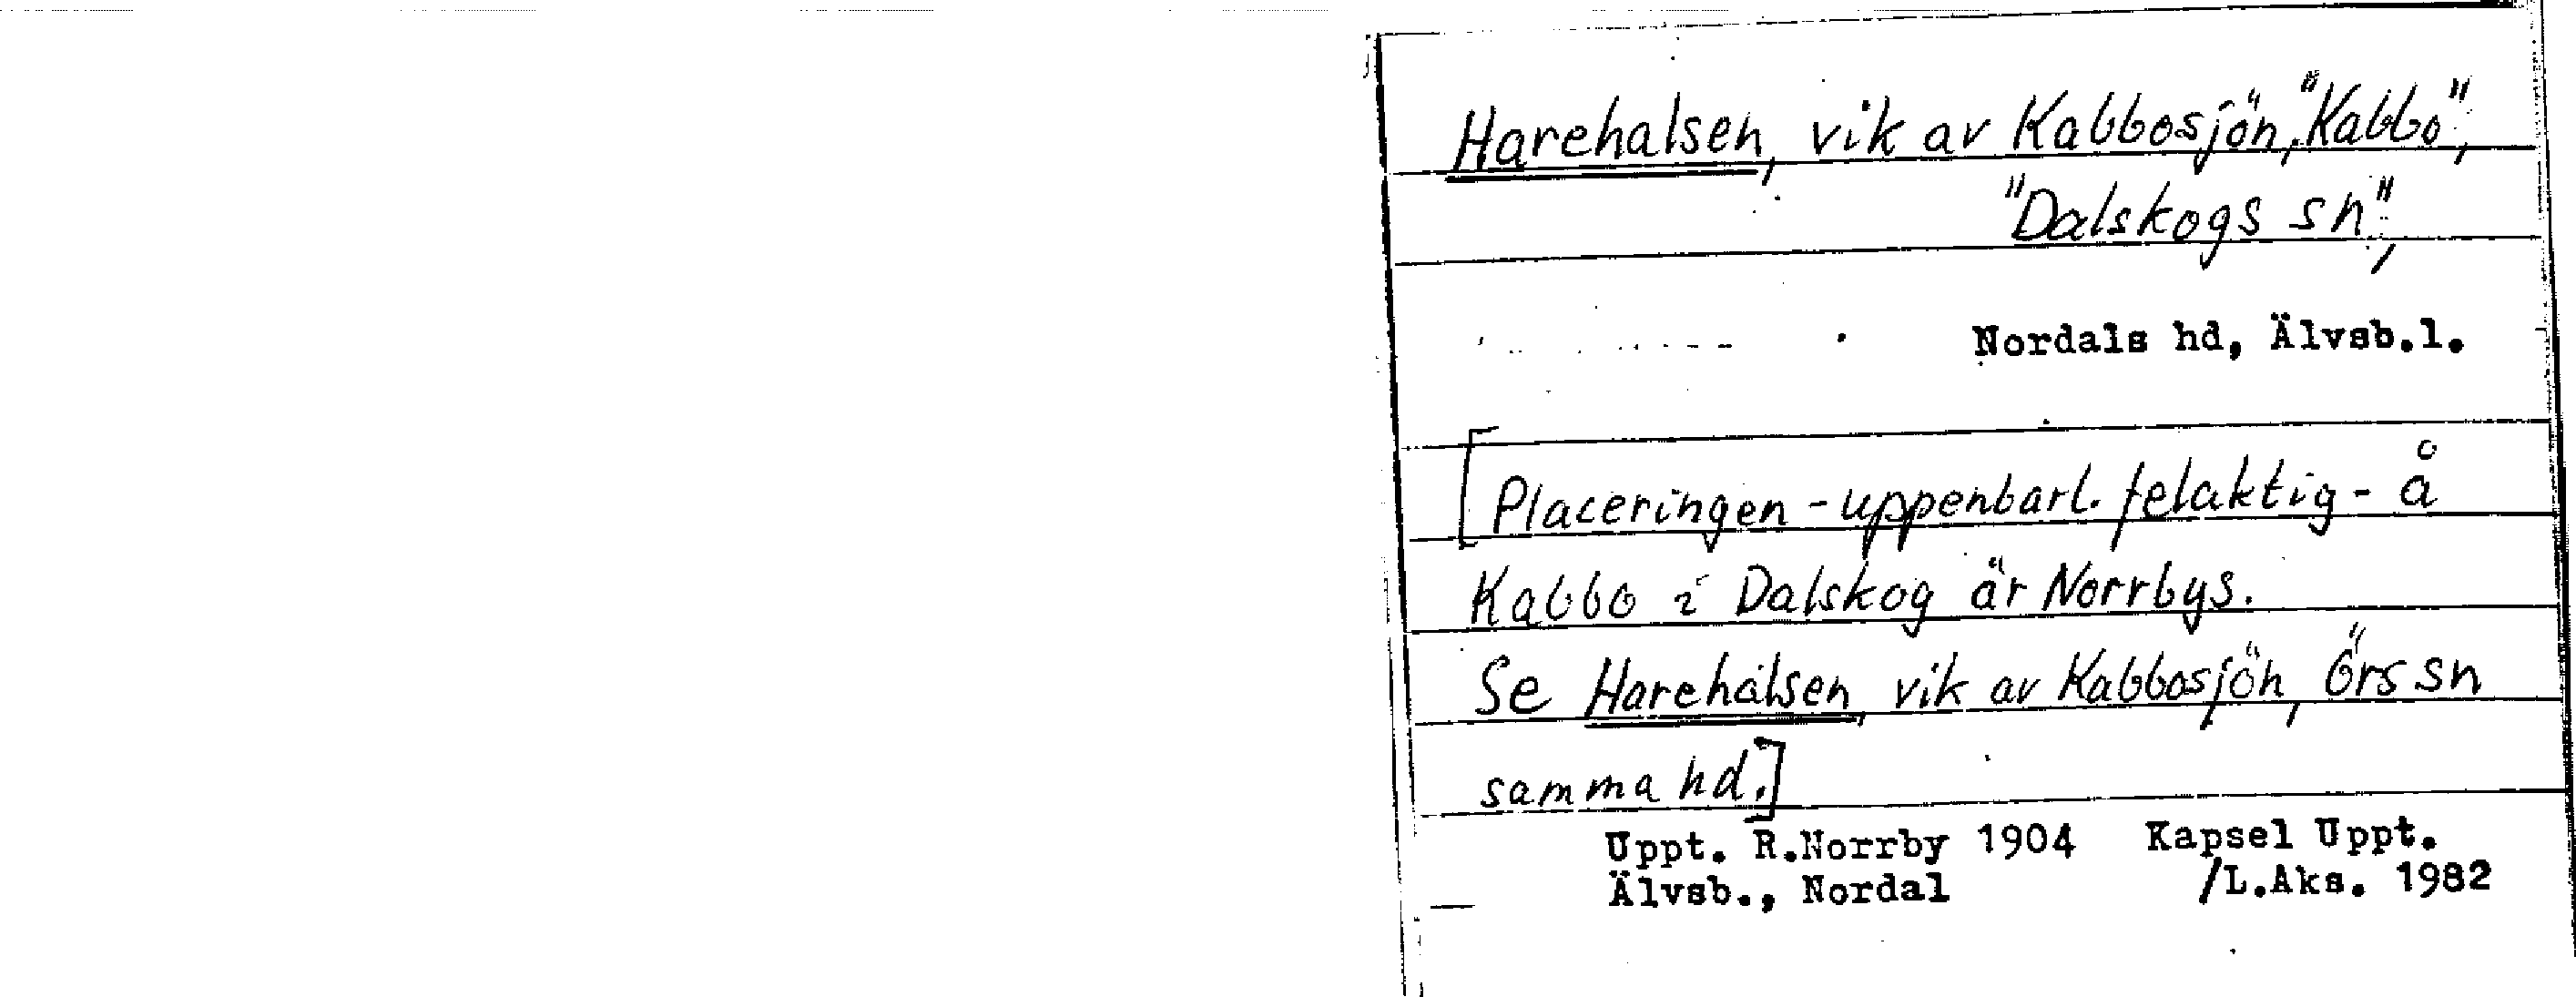 Harehalsen, vik av Kabbosjön, "Kabbo",
"Dalskogs sn",
Nordals hd, Älvsb.l.
[Placeringen - uppenbarl. felaktig - å
Kabbo i Dalskog är Norrbys.
Se Harehalsen, vik av Kabbosjön, Örs sn
samma hd.]
Uppt. R.Norrby 1904 Kapsel Uppt.
Älvsb., Nordal /L.Aks. 1982